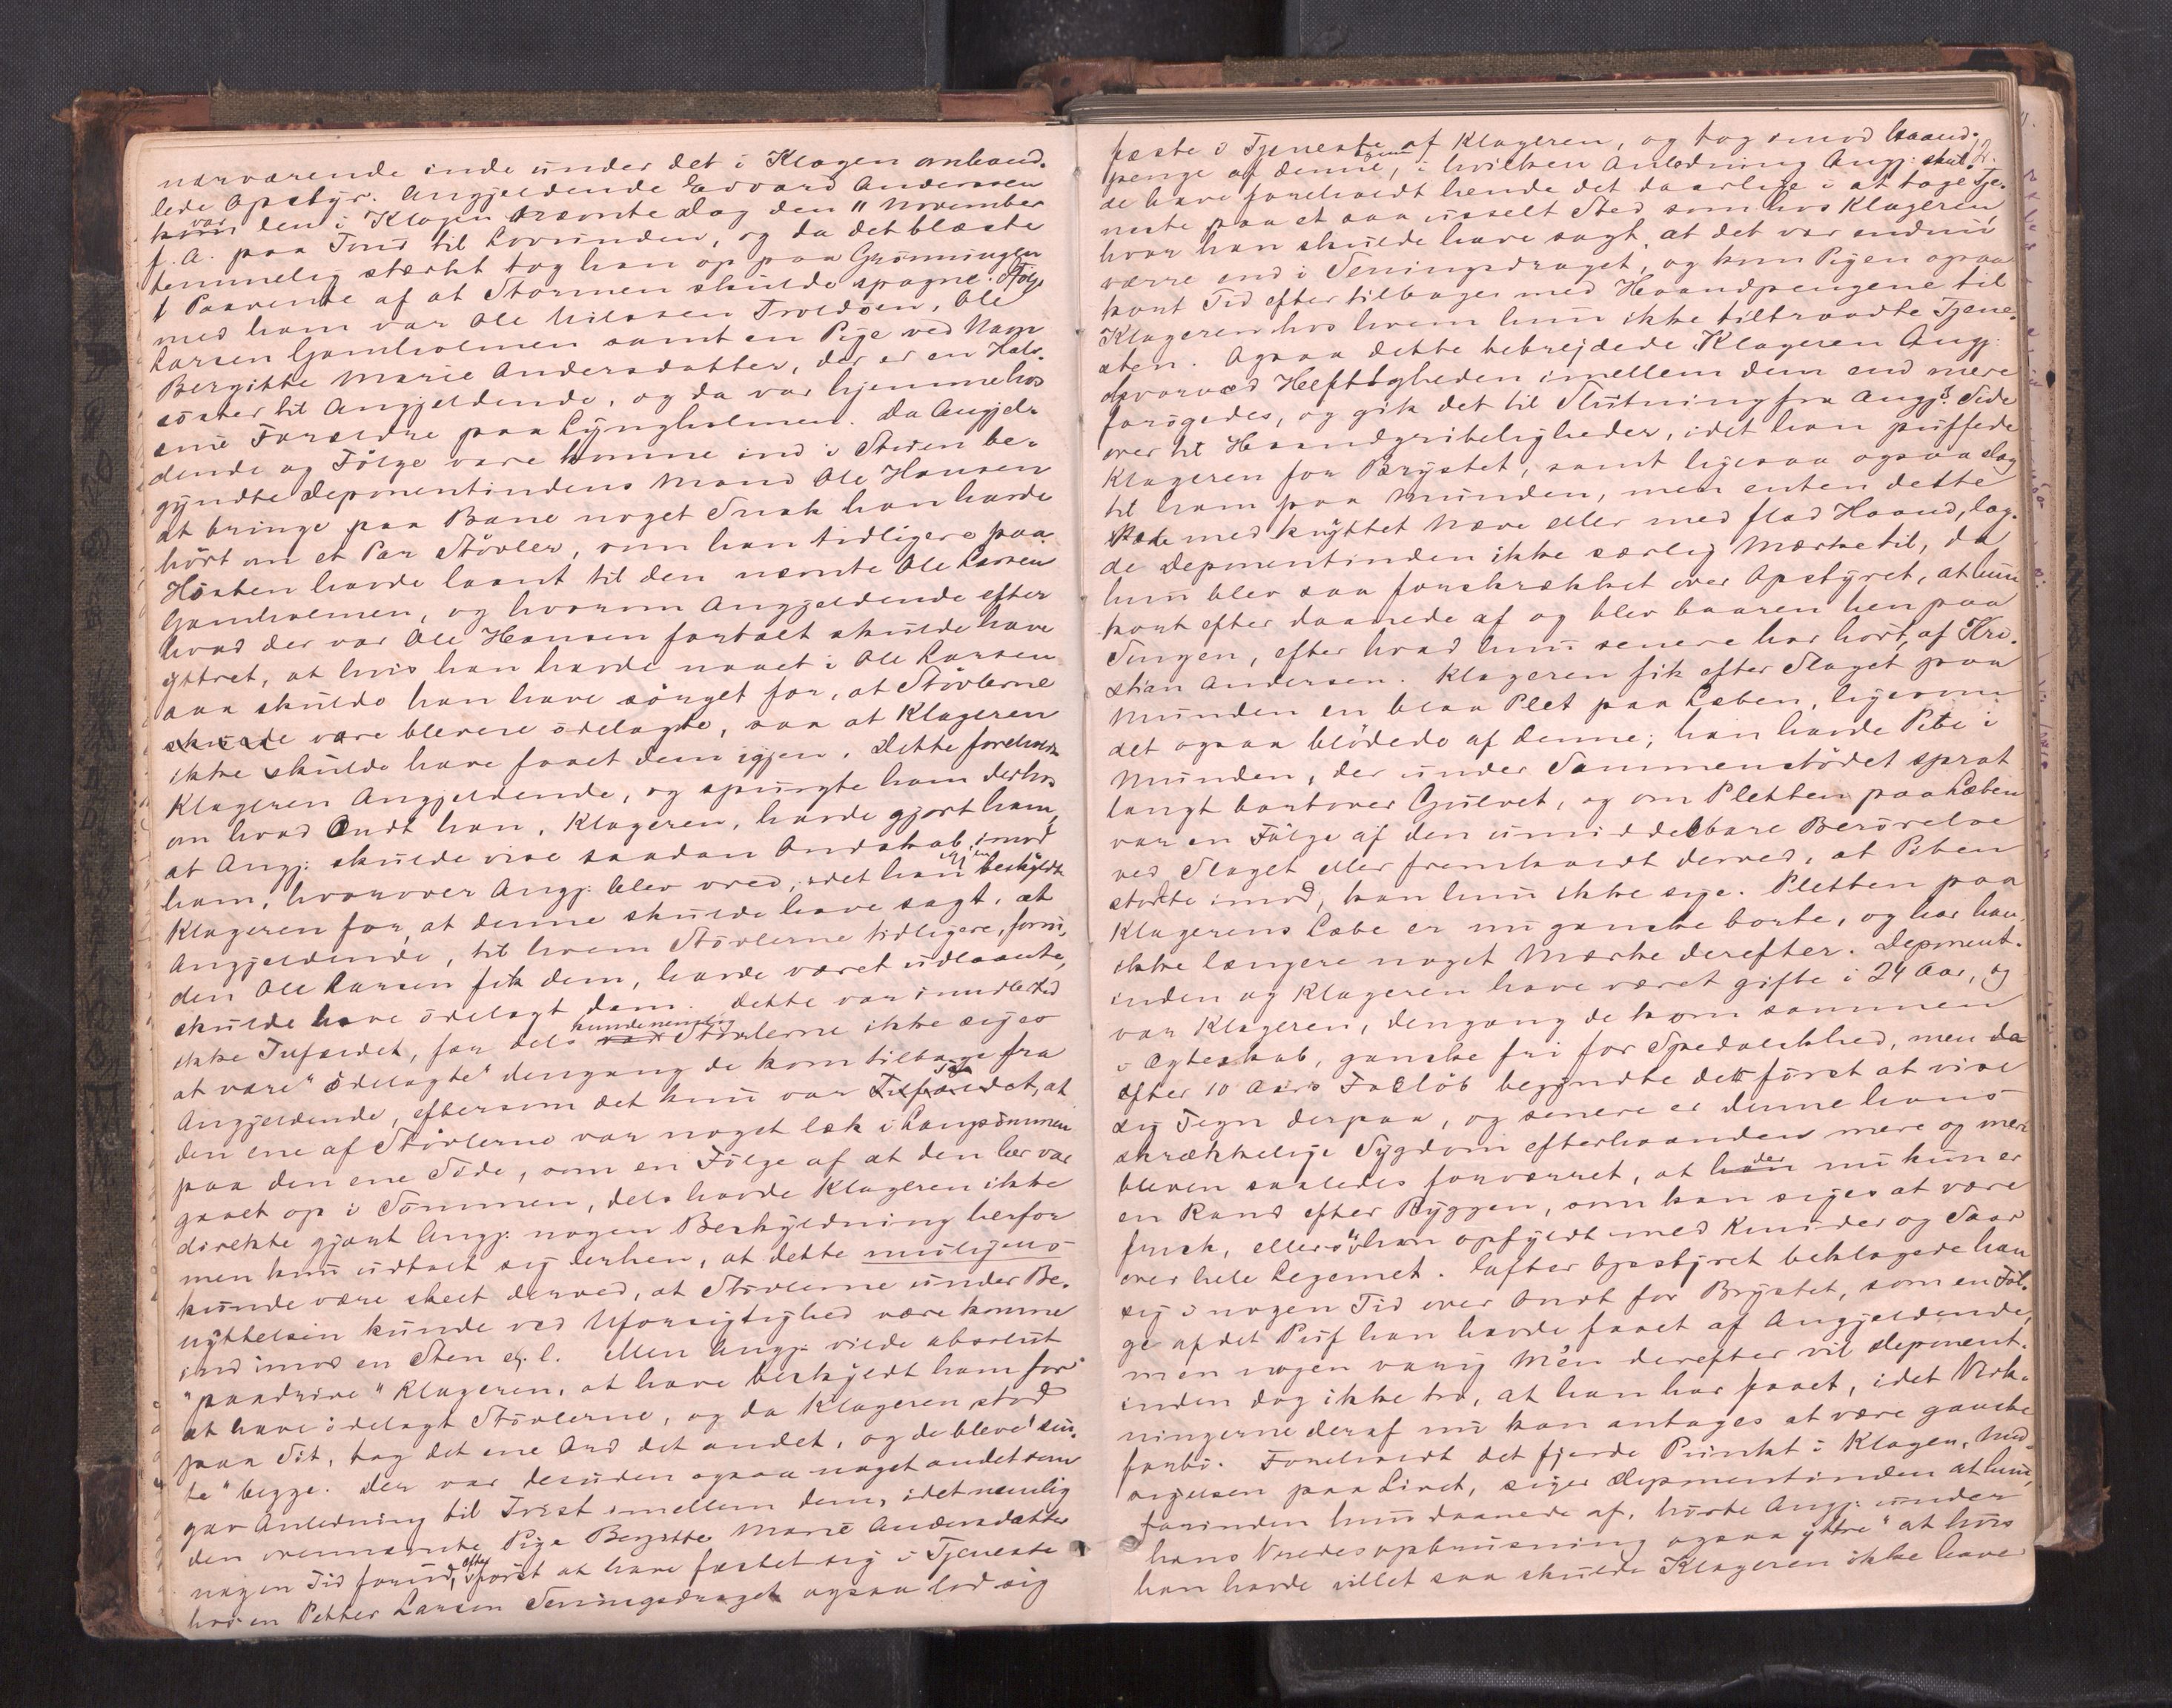 nærværende inde under det i Klagen omhand-
lede Opstyr. Angjeldende Edvard Andersen
var den i Klagen nævnte Dag den 11 November
f. A. paa Tour til Lovunden, og da det blæste
temmelig stærkt tog han op paa Grønningen
i Paavente af at Stormen skulde spagne. I Følge
med ham var Ole Nilssen Troldøen, Ole
Larsen Gamholmen samt en Pige ved Navn
Bergitte Marie Andersdatter, der er en Halv-
søster til Angjeldende, og da var hjemme hos
sine Forældre paa Lyngholmen. Da Angjel-
dende og Følge vare komne ind i Stuen be-
gyndte Deponentindens Mand Ole Hansen
at bringe paa Bane noget Snak han havde
hørt om et Par Støvler, som han tidligere paa
Høsten havde laant til den nævnte Ole Larsen
Gamholmen, og hvorom Angjeldende efter
hvad der var Ole Hansen fortalt skulde have
yttret, at hvis han havde naaet i Ole Larsen
saa skulde han have sørget for, at Støvlerne
skulde vare blevne ødelagte, saa at Klageren
ikke skulde have faaet dem igjen. Dette foreholdt
Klageren Angjeldende, og spurgte ham derhos
om hvad Ondt han, Klageren, havde gjort ham,
at Angj. skulde vise saadan Ondskab imod
ham, hvorover Angj. blev vred, idet han beskyldte
Klageren for, at denne skulde have sagt, at
Angjeldende, til hvem Støvlerne tidligere, forin-
den Ole Larsen fik dem, havde været udlaante,
skulde have ødelagt dem. Dette var imidlertid
ikke Tilfældet, for dels kunde nemlig Støvlerne ikke siges
at være "ødelagte" dengang de kom tilbage fra
Angjeldende, eftersom det kun var saa, at
den ene af Støvlerne var noget læk i Langsømmen
paa den ene Side, som en Følge af at den her var
gaaet op i Sømmen, dels havde Klageren ikke
direkte gjort Angj. nogen Beskyldning herfor
men kun udtalt sig derhen, at dette muligens
kunde være skeet derved, at Støvlerne under Be-
nyttelsen kunde ved Uforsigtighed være komne
ind imod en Sten e. l. Men Angj. vilde absolut
"paadrive" Klageren, at have beskyldt ham for
at have ødelagt Støvlerne, og da Klageren stod
paa Sit, tog det ene Ord det andet, og de bleve "sin-
te" begge. Der var desuden ogsaa noget andet som
gav Anledning til Tvist imellem dem, idet nemlig
den ovennævnte Pige Bergitte Marie Andersdatter
nogen Tid forud, efter først at have fæstet sig i Tjeneste
hos en Petter Larsen Seningsdraget ogsaa lod sig
fæste i Tjeneste af Klageren, og tog imod Haand-
penge af denne, i hvilken Anledning Angj. skul-
de have foreholdt hende det daarlige i at tage Tje-
neste paa et saa usselt Sted som hos Klageren,
hvor han skulde have sagt, at det var endnu
værre end i Seningsdraget, og kom Pigen ogsaa
kort Tid efter tilbage med Haandpengene til
Klageren hos hvem hun ikke tiltraadte Tjene-
sten. Ogsaa dette bebrejdede Klageren Angj.
hvorved Heftigheden imellem dem end mere
forøgedes, og gik det til Slutning fra Angj.s Side
over til Haandgribeligheder, idet han puffede
Klageren for Brystet, samt ligesaa ogsaa slog
til ham paa Munden, men enten dette
skede med knyttet Næve eller med flad Haand, lag-
de Deponentinden ikke særlig Mærke til, da
hun blev saa forskrækket over Opstyret, at hun
kort efter daanede af og blev baaren hen paa
Sengen, efter hvad hun senere har hørt, af Kri-
stian Andersen. Klageren fik efter Slaget paa
Munden en blaa Plet paa Læben, ligesom
det ogsaa blødede af denne; han havde Pibe i
Munden, der under Sammenstødet sprat
langt bortover Gulvet, og om Pletten paa Læben
var en Følge af den umiddelbare Berørelse
ved Slaget eller fremkaldt derved, at Piben
stødte imod, kan hun ikke sige. Pletten paa
Klagerens Læbe er nu ganske borte, og har han
ikke længere noget Mærke derefter. Deponent-
inden og Klageren have været gifte i 24 Aar, og
var Klageren, dengang de kom sammen
i Ægteskab, ganske fri for Spedalskhed, men da
efter 10 Aars Forløb begyndte det først at vise
sig Tegn derpaa, og senere er denne hans
skrækkelige Sygdom efterhaanden mere og mere
bleven saaledes forværret, at der nu kun er
en Rand efter Ryggen, som kan siges at være
frisk, ellers er han opfyldt med Knuder og Saar
over hele Legemet. Efter Opstyret beklagede han
sig i nogen Tid over Ondt for Brystet, som en Føl-
ge af det Puf han havde faaet af Angjeldende,
men nogen varig Mén derefter vil Deponent-
inden dog ikke tro, at han har faaet, idet Virk-
ningerne deraf nu kan antages at være ganske
forbi. Foreholdt det fjerde Punkt i Klagen, Und-
sigelsen paa Livet, siger Deponentinden at hun,
forinden hun daanede af, hørte Angj. under
hans Vredesopbrusning ogsaa yttre "at hvis
han havde villet saa skulde Klageren ikke have